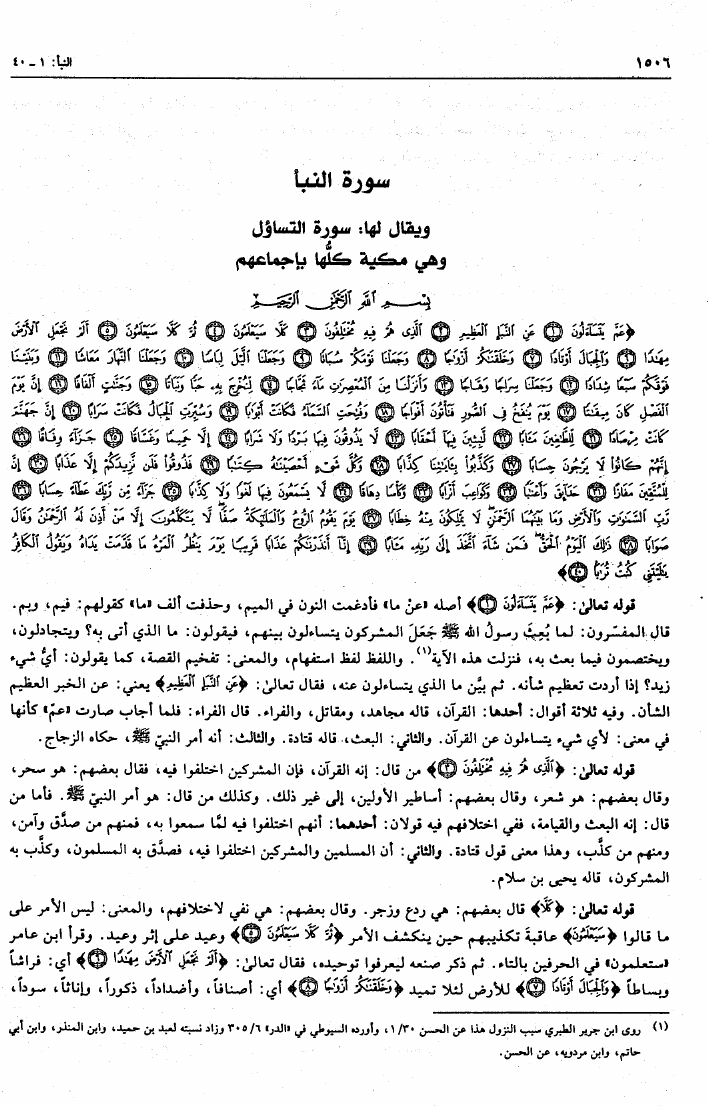 ١٥٠٦ النبأ: ١ ـ ٤٠
سورة النبأ
ويقال لها: سورة التساؤل
وهي مكية كلُّها بإجماعهم
بِسْمِ اللَّهِ الرَّحْمَنِ الرَّحِيمِ
﴿عَمَّ يَتَسَاءَلُونَ ﴿١﴾ عَنِ النَّبَإِ الْعَظِيمِ ﴿٢﴾ الَّذِي هُمْ فِيهِ مُخْتَلِفُونَ ﴿٣﴾ كَلَّا سَيَعْلَمُونَ ﴿٤﴾ ثُمَّ كَلَّا سَيَعْلَمُونَ ﴿٥﴾ أَلَمْ نَجْعَلِ الْأَرْضَ
مِهَادًا ﴿٦﴾ وَالْجِبَالَ أَوْتَادًا ﴿٧﴾ وَخَلَقْنَاكُمْ أَزْوَاجًا ﴿٨﴾ وَجَعَلْنَا نَوْمَكُمْ سُبَاتًا ﴿٩﴾ وَجَعَلْنَا اللَّيْلَ لِبَاسًا ﴿١٠﴾ وَجَعَلْنَا النَّهَارَ مَعَاشًا ﴿١١﴾ وَبَنَيْنَا
فَوْقَكُمْ سَبْعًا شِدَادًا ﴿١٢﴾ وَجَعَلْنَا سِرَاجًا وَهَّاجًا ﴿١٣﴾ وَأَنْزَلْنَا مِنَ الْمُعْصِرَاتِ مَاءً ثَجَّاجًا ﴿١٤﴾ لِنُخْرِجَ بِهِ حَبًّا وَنَبَاتًا ﴿١٥﴾ وَجَنَّاتٍ أَلْفَافًا ﴿١٦﴾ إِنَّ يَوْمَ
الْفَصْلِ كَانَ مِيقَاتًا ﴿١٧﴾ يَوْمَ يُنْفَخُ فِي الصُّورِ فَتَأْتُونَ أَفْوَاجًا ﴿١٨﴾ وَفُتِحَتِ السَّمَاءُ فَكَانَتْ أَبْوَابًا ﴿١٩﴾ وَسُيِّرَتِ الْجِبَالُ فَكَانَتْ سَرَابًا ﴿٢٠﴾ إِنَّ جَهَنَّمَ
كَانَتْ مِرْصَادًا ﴿٢١﴾ لِلطَّاغِينَ مَآبًا ﴿٢٢﴾ لَابِثِينَ فِيهَا أَحْقَابًا ﴿٢٣﴾ لَا يَذُوقُونَ فِيهَا بَرْدًا وَلَا شَرَابًا ﴿٢٤﴾ إِلَّا حَمِيمًا وَغَسَّاقًا ﴿٢٥﴾ جَزَاءً وِفَاقًا ﴿٢٦﴾
إِنَّهُمْ كَانُوا لَا يَرْجُونَ حِسَابًا ﴿٢٧﴾ وَكَذَّبُوا بِآيَاتِنَا كِذَّابًا ﴿٢٨﴾ وَكُلَّ شَيْءٍ أَحْصَيْنَاهُ كِتَابًا ﴿٢٩﴾ فَذُوقُوا فَلَنْ نَزِيدَكُمْ إِلَّا عَذَابًا ﴿٣٠﴾ إِنَّ
لِلْمُتَّقِينَ مَفَازًا ﴿٣١﴾ حَدَائِقَ وَأَعْنَابًا ﴿٣٢﴾ وَكَوَاعِبَ أَتْرَابًا ﴿٣٣﴾ وَكَأْسًا دِهَاقًا ﴿٣٤﴾ لَا يَسْمَعُونَ فِيهَا لَغْوًا وَلَا كِذَّابًا ﴿٣٥﴾ جَزَاءً مِنْ رَبِّكَ عَطَاءً حِسَابًا ﴿٣٦﴾
رَبِّ السَّمَاوَاتِ وَالْأَرْضِ وَمَا بَيْنَهُمَا الرَّحْمَنِ لَا يَمْلِكُونَ مِنْهُ خِطَابًا ﴿٣٧﴾ يَوْمَ يَقُومُ الرُّوحُ وَالْمَلَائِكَةُ صَفًّا لَا يَتَكَلَّمُونَ إِلَّا مَنْ أَذِنَ لَهُ الرَّحْمَنُ وَقَالَ
صَوَابًا ﴿٣٨﴾ ذَلِكَ الْيَوْمُ الْحَقُّ فَمَنْ شَاءَ اتَّخَذَ إِلَى رَبِّهِ مَآبًا ﴿٣٩﴾ إِنَّا أَنْذَرْنَاكُمْ عَذَابًا قَرِيبًا يَوْمَ يَنْظُرُ الْمَرْءُ مَا قَدَّمَتْ يَدَاهُ وَيَقُولُ الْكَافِرُ
يَا لَيْتَنِي كُنْتُ تُرَابًا ﴿٤٠﴾﴾
قوله تعالى: ﴿عَمَّ يَتَسَاءَلُونَ ﴿١﴾﴾ أصله «عنْ ما» فأدغمت النون في الميم، وحذفت ألف «ما» كقولهم: فيم، وبم.
قال المفسّرون: لما بُعِثَ رسولُ الله ﷺ جَعَلَ المشركون يتساءلون بينهم، فيقولون: ما الذي أتى به؟ ويتجادلون،
ويختصمون فيما بعث به، فنزلت هذه الآية(١). واللفظ لفظ استفهام، والمعنى: تفخيم القصة، كما يقولون: أيُّ شيء
زيد؟ إذا أردت تعظيم شأنه. ثم بيَّن ما الذي يتساءلون عنه، فقال تعالى: ﴿عَنِ النَّبَإِ الْعَظِيمِ﴾ يعني: عن الخبر العظيم
الشأن. وفيه ثلاثة أقوال: أحدها: القرآن، قاله مجاهد، ومقاتل، والفراء. قال الفراء: فلما أجاب صارت «عمّ» كأنها
في معنى: لأي شيء يتساءلون عن القرآن. والثاني: البعث، قاله قتادة. والثالث: أنه أمر النبيّ ﷺ، حكاه الزجاج.
قوله تعالى: ﴿الَّذِي هُمْ فِيهِ مُخْتَلِفُونَ ﴿٣﴾﴾ من قال: إنه القرآن، فإن المشركين اختلفوا فيه، فقال بعضهم: هو سحر،
وقال بعضهم: هو شعر، وقال بعضهم: أساطير الأولين، إلى غير ذلك. وكذلك من قال: هو أمر النبيّ ﷺ. فأما من
قال: إنه البعث والقيامة، ففي اختلافهم فيه قولان: أحدهما: أنهم اختلفوا فيه لمَّا سمعوا به، فمنهم من صدَّق وآمن،
ومنهم من كذَّب، وهذا معنى قول قتادة. والثاني: أن المسلمين والمشركين اختلفوا فيه، فصدَّق به المسلمون، وكذَّب به
المشركون، قاله يحيى بن سلام.
قوله تعالى: ﴿كَلَّا﴾ قال بعضهم: هي ردع وزجر. وقال بعضهم: هي نفي لاختلافهم، والمعنى: ليس الأمر على
ما قالوا ﴿سَيَعْلَمُونَ﴾ عاقبةَ تكذيبهم حين ينكشف الأمر ﴿ثُمَّ كَلَّا سَيَعْلَمُونَ ﴿٥﴾﴾ وعيد على إثر وعيد. وقرأ ابن عامر
«ستعلمون» في الحرفين بالتاء. ثم ذكر صنعه ليعرفوا توحيده، فقال تعالى: ﴿أَلَمْ نَجْعَلِ الْأَرْضَ مِهَادًا ﴿٦﴾﴾ أي: فراشاً
وبساطاً ﴿وَالْجِبَالَ أَوْتَادًا ﴿٧﴾﴾ للأرض لئلا تميد ﴿وَخَلَقْنَاكُمْ أَزْوَاجًا ﴿٨﴾﴾ أي: أصنافاً، وأضداداً، ذكوراً، وإناثاً، سوداً،
(١) روى ابن جرير الطبري سبب النزول هذا عن الحسن ١/٣٠، وأورده السيوطي في «الدر» ٣٠٥/٦ وزاد نسبته لعبد بن حميد، وابن المنذر، وابن أبي
حاتم، وابن مردويه، عن الحسن.